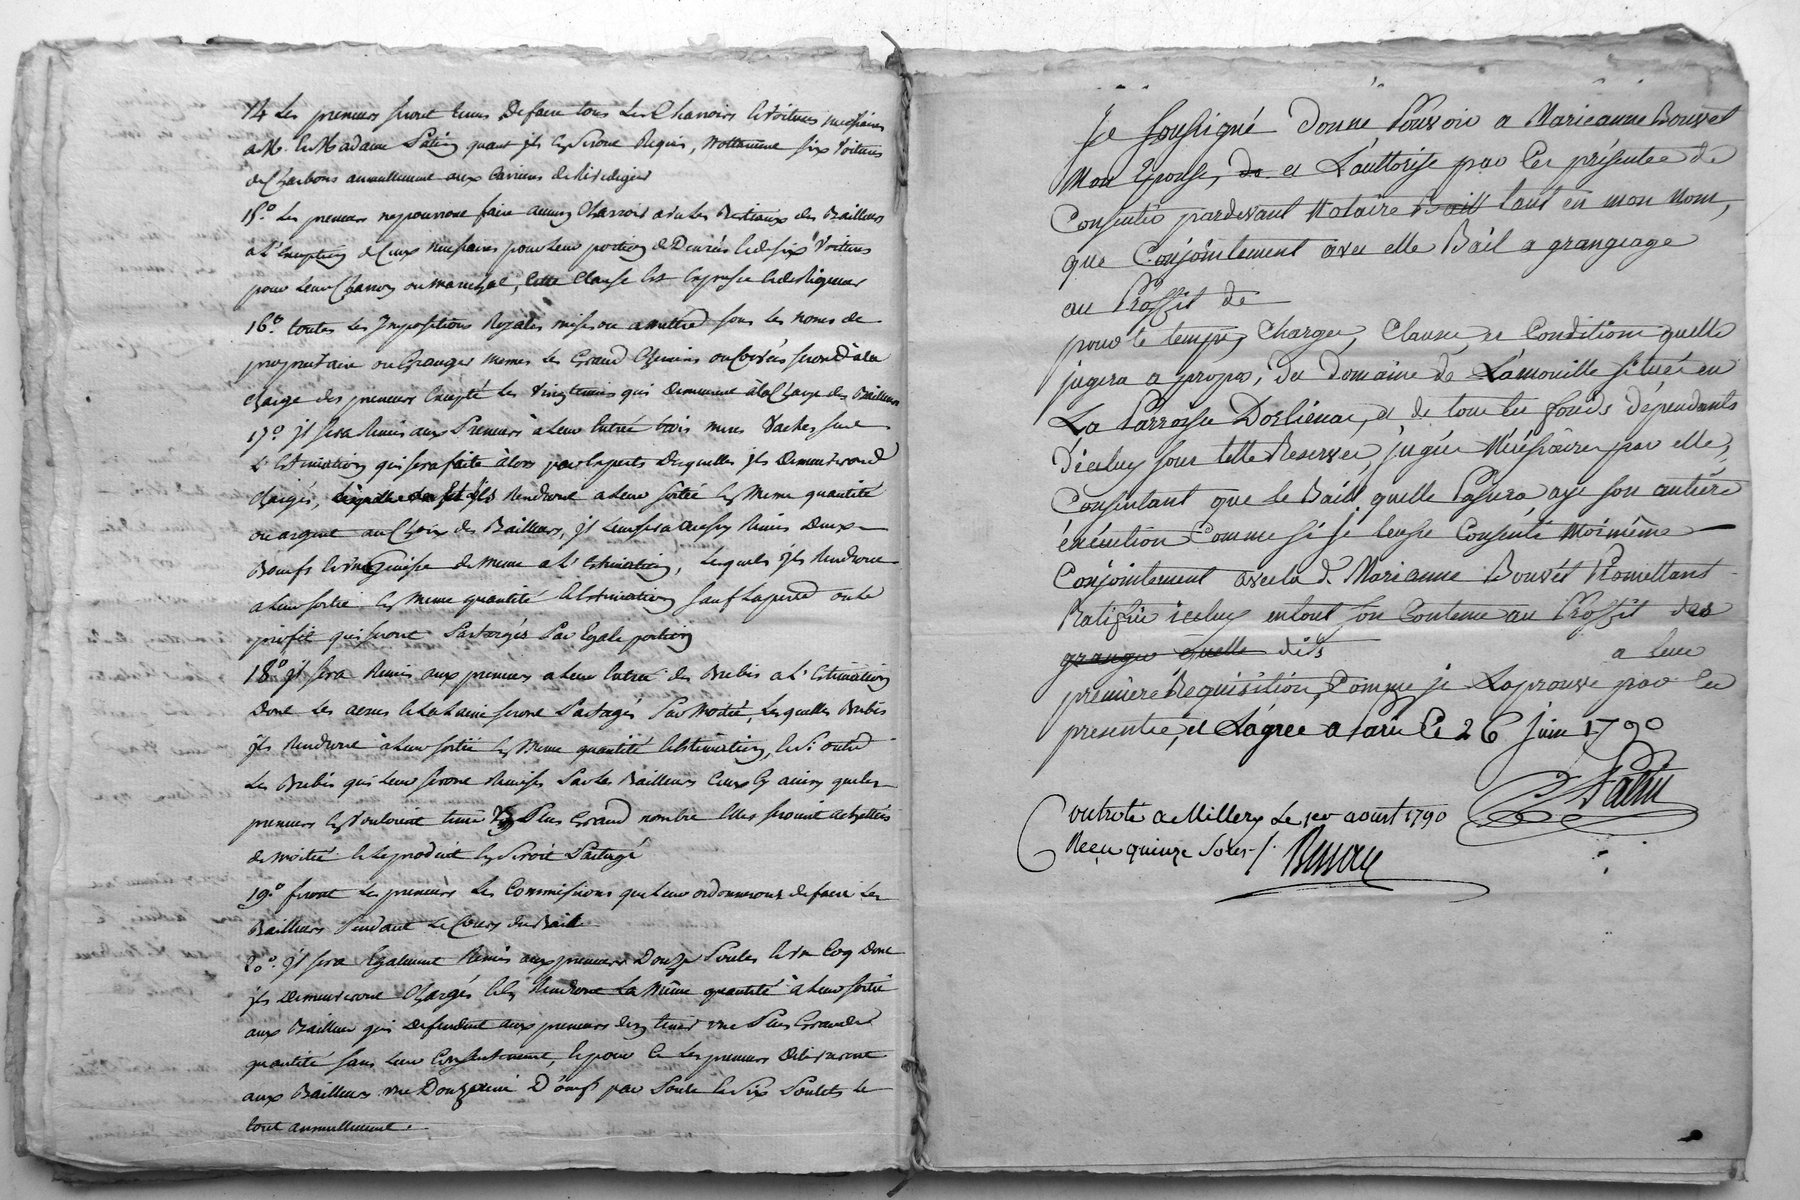 14 Les preneurs seront tenus De faire tous Les Charrois & voitures necessaires
a M. & Madame Patin quant ils En seront Requis, Nottamment six voitures
de Charbons annuellement aux
15.o Les preneurs ne pourront faire aucun Charroir avec les Bestiaux des Bailleurs
à L'exeption de Ceux necessaires pour Leur portion de Denrées & de six Voitures
pour Leur Charroy ou marechal, Cette Clause Est Expresse & de Rigueur
16.o toutes Les Impositions Royales mises ou a mettre sous les noms de
proprietaire ou Granger memes Les Grand Chemins ou Corvées seront à la
charge des preneurs Excepté les vingtiemes qui Demeurent à la Charge des Bailleurs
17.o il sera Remis aux Preneurs à Leur Entrée trois meres vaches sur
L'Estimation qui sera faite alors par Experts desquelles ils Demeureront
chargés, ils Rendront a Leur sortie La Meme quantité
ou argent au Choix des Bailleurs, il Leur sera aussy Remis Deux
Bœufs & une Genisse de meme a L'Estimation, Lesquels ils Rendront
a Leur sortie La Meme quantité & Estimation sauf La perte ou Le
profit qui seront Partagés Par Egale portion
18.o il sera Remis aux preneurs a Leur Entrée des Brebis a L'Estimation
Dont Les & La Laine seront Partagés Par Moitié, Lesquelles Brebis
ils Rendront à Leur sortie La Meme quantité & Estimation, & si outre
Les Brebis qui Leur seront Remises Par Les Bailleurs Ceux Cy ainsy que Les
preneurs En Vouloient tenir En Plus Grand nombre Elles seroient achettées
de moitié & Le produit En seroit Partagé
19.o feront Les preneurs Les Commissions que Leur ordonneront de faire Les
Bailleurs Pendant Le Cours du Bail
20.o il sera Egalement Remis aux preneurs Douze Poules & un Coq Dont
ils Demeureront Chargés & En Rendront La Même quantité à Leur sortie
aux Bailleurs qui Deffendent aux preneurs d'en tenir une Plus Grande
quantité sans Leur Consentement, & pour Ce Les preneurs Delivreront
aux Bailleurs une Douzaine D'œufs par Poule & six Poulets le
tout annuellement.
Je soussigné donne Pouvoir a Marieanne Bouvet
Mon Epouse, de et L'auttorise par Les présentes de
Consentir pardevant Notaire Bail tant en mon Nom,
que Conjointement avec elle Bail a grangeage
au Proffit de
pour le temps, Charges, Clauses, et Conditions quelle
jugera a propos, du domaine de Lamouille située en
La Parroisse Dorlienas, et de tous les fonds dépendants
d'iceluy sous telle Reserves, jugées Nécéssaires par elle,
Consentant que le Bail quelle Passera aye son entiére
éxécution Comme si je leusse Consenti Moimême
Conjointement avec la d. Marianne Bouvét Promettant
Ratifier iceluy entout son Contenu au Proffit des
granger quelle dits a leur
premiere Requisition, Comme je Laprouve par Les
presentes, et Lagrée a Paris Ce 26 Juin 1790
Patin
Controté a Millery Le 1er aoust 1790
Reçu quinze sols